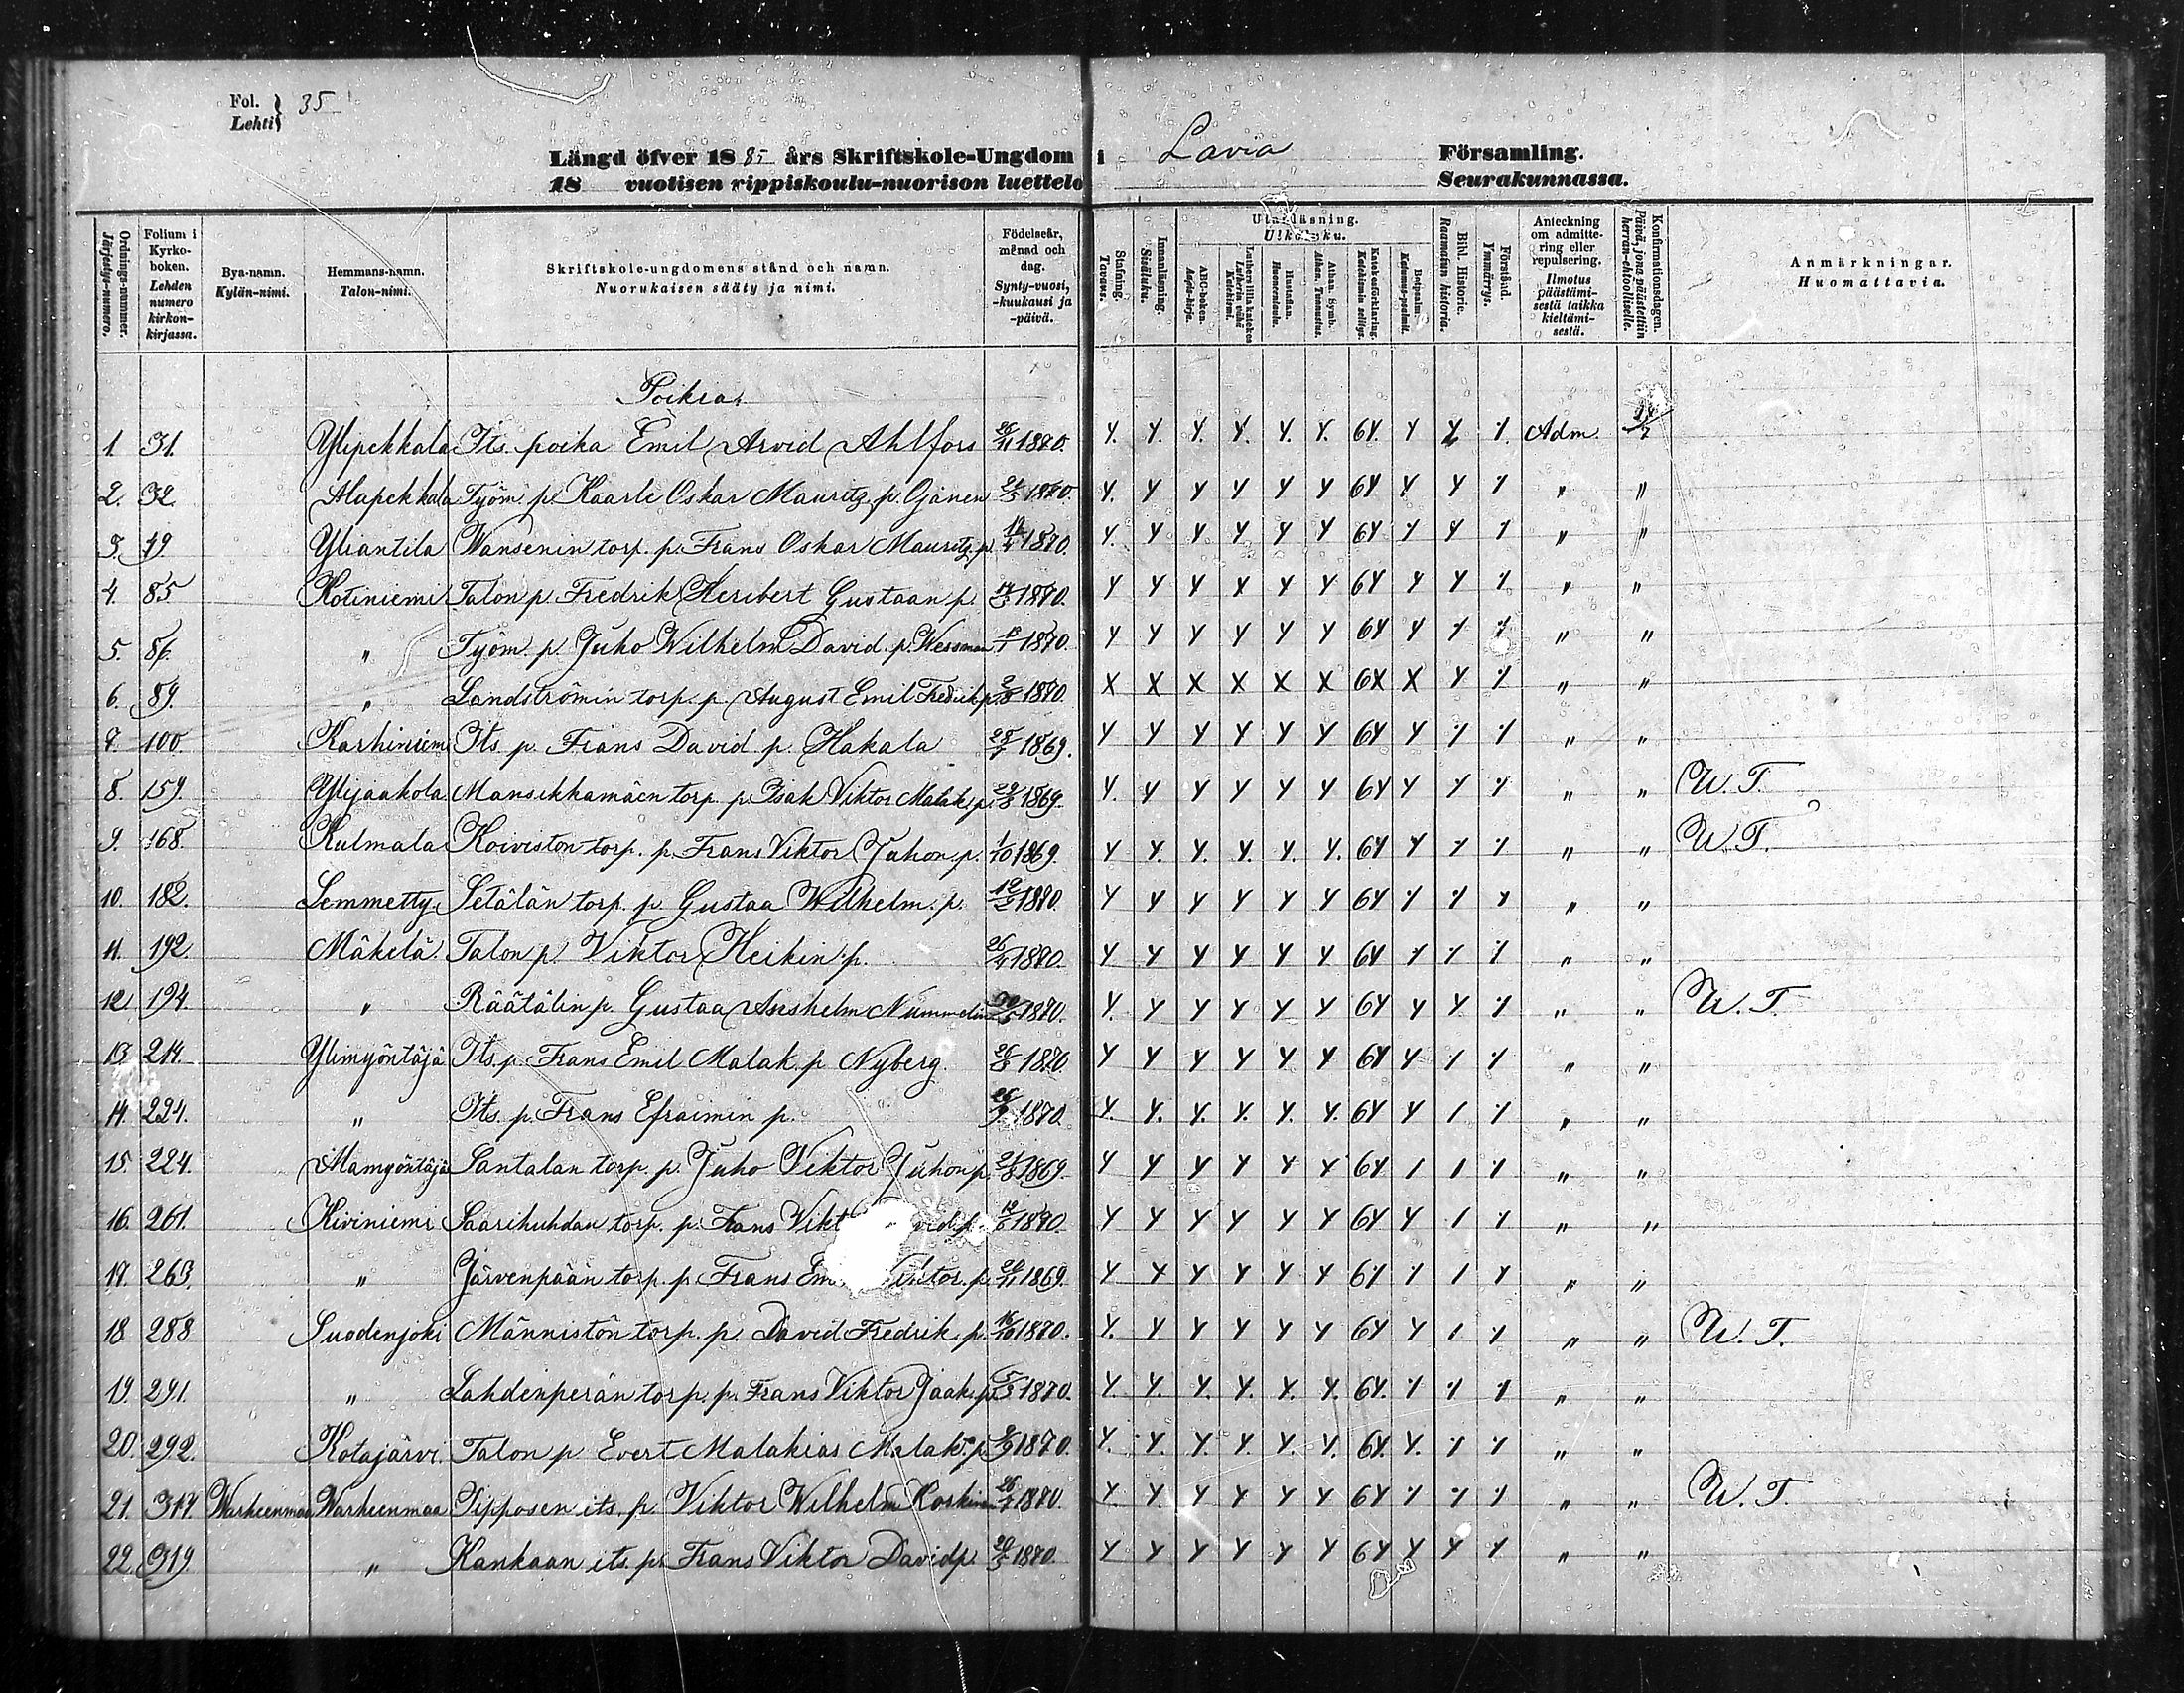 Fol. 35
Lehti
Längd öfver 1885 års Skriftskole-Ungdom i Lavia Församling.
18 vuotisen rippiskoulu-nuorison luettelo Seurakunnassa.
Ordnings-nummer. Järjestys-numero.
Folium i Kyrko-boken. Lehden numero kirkon-kirjassa.
Bya-namn. Kylän-nimi.
Hemmans-namn. Talon-nimi.
Skriftskole-ungdomens stånd och namn. Nuorukaisen sääty ja nimi.
Födelseår, månad och dag. Synty-vuosi, -kuukausi ja -päivä.
Stafning. Tavaus.
Innanläsning. Sisäluku.
Utanläsning. Ulkoluku.
ABC-boken. Aapis-kirja.
Luthers lilla katekes Lutherin vähä Katekismi.
Hustaflan. Huoneentaulu.
Athan. Symb. Athan. Tunnustus.
Katekesförklaring. Katekismin selitys.
Botpsalm. Katumus-psalmit.
Bibl. Historie. Raamatun historia.
Förstånd. Ymmärrys.
Anteckning om admittering eller repulsering. Ilmotus päästämisestä taikka kieltämisestä.
Konfirmationsdagen. Päivä, jona päästettiin herran-ehtoolliselle.
Anmärkningar. Huomattavia.
Poikia.
1. 31. Ylipekkala Its. poika Emil Arvid Ahlfors 26/11 1870. Y. Y. Y. Y. Y. Y. 6Y. Y Adm.
2. 32. Alapekkala Työm. p. Kaarle Oskar Mauritz p. 1870. Y. Y Y Y Y Y 6Y Y Y " "
3. 79 Yliantila Wansenin torp. p. Frans Oskar Mauritz p. 1870. Y. Y Y Y Y Y 6Y " "
4. 85 Kotiniemi Talon p. Fredrik Heribert Gustaan p. 1870. Y Y Y Y Y Y 6Y Y Y " "
5. 86. " Työm. p. Juho Wilhelm David. p. Wessman 1870. Y Y Y Y Y Y 6Y Y " "
6. 89. " Landströmin torp. p. August Emil Fredrik p. 1870. X X X X X X 6X X Y " "
7. 100. Karhiniemi Its. p. Frans David p. Hakala 1869. Y Y Y Y Y Y 6Y Y " "
8. 159. Ylijaakola Mansikkamäen torp. p. Isak Viktor Malak. p. 1869. Y. Y Y Y Y Y 6Y Y " " W. T.
9. 168. Kulmala Koiviston torp. p. Frans Viktor Juhon p. 1/10 1869. Y Y. Y. Y. Y. Y. 6Y Y " " W. T.
10. 182. Lemmetty Setälän torp. p. Gustaa Wilhelm. p. 1870. Y Y Y Y Y Y 6Y " "
11. 192. Mäkelä Talon p. Viktor Heikin p. 26/4 1870. Y Y Y Y Y Y 6Y " "
12. 194. " Räätälin p. Gustaa Anshelm Nummelin 1870. Y. Y Y Y Y Y 6Y Y Y " " W. T.
13. 214. Ylimyöntäjä Its. p. Frans Emil Malak. p. Nyberg. 1870. Y Y Y Y Y Y 6Y Y " "
14. 224. " Its. p. Frans Efraimin p. 26/9 1870. Y. Y. Y. Y. Y. Y. 6Y Y " "
15. 224. Alamyöntäjä Santalan torp. p. Juho Viktor Juhon p. 1869. Y Y Y Y Y Y 6Y " "
16. 261. Kiviniemi Saarihuhdan torp. p. Frans 1870. Y Y Y Y Y Y 6Y Y " "
17. 263. " Järvenpään torp. p. Frans 1869. Y Y Y Y Y Y " "
18. 288. Suodenjoki Männistön torp. p. David Fredrik. p. 16/10 1870. Y. Y Y Y Y Y 6Y Y " " W. T.
19. 291. " Lahdenperän torp. p. Frans Viktor Jaak. p. 1870. Y. Y. Y. Y. Y. Y. 6Y. " "
20. 292. Kotajärvi. Talon p. Evert Malakias Malak. p. 1870. Y. Y. Y. Y. Y. Y. 6Y. Y. " "
21. 317. Warheenmaa Warheenmaa Pipposen its. p. Viktor Wilhelm 1870. Y. Y. Y Y Y Y 6Y " " W. T.
22. 319. " Kankaan its. p. Frans Viktor David p. 1870. Y Y Y Y Y Y 6Y Y Y " "